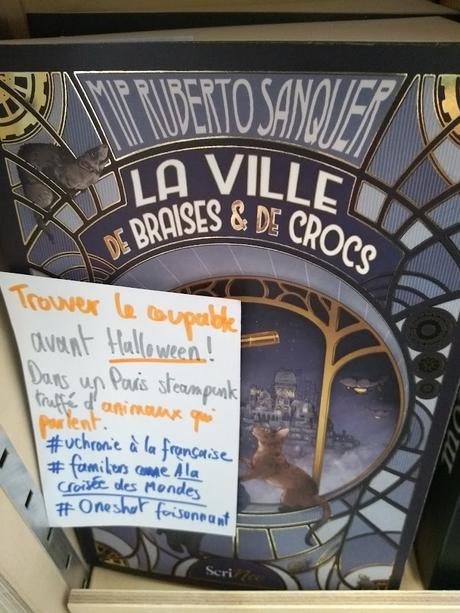 MIP RUBERTO SANQUER
LA VILLE
DE BRAISES & DE CROCS
Trouver le coupable
avant Halloween !
Dans un Paris steampunk
truffé d'animaux qui
parlent.
#uchronie à la française
# familiers comme A la
croisée des Mondes
# Oneshot foisonnant
ScriNeo